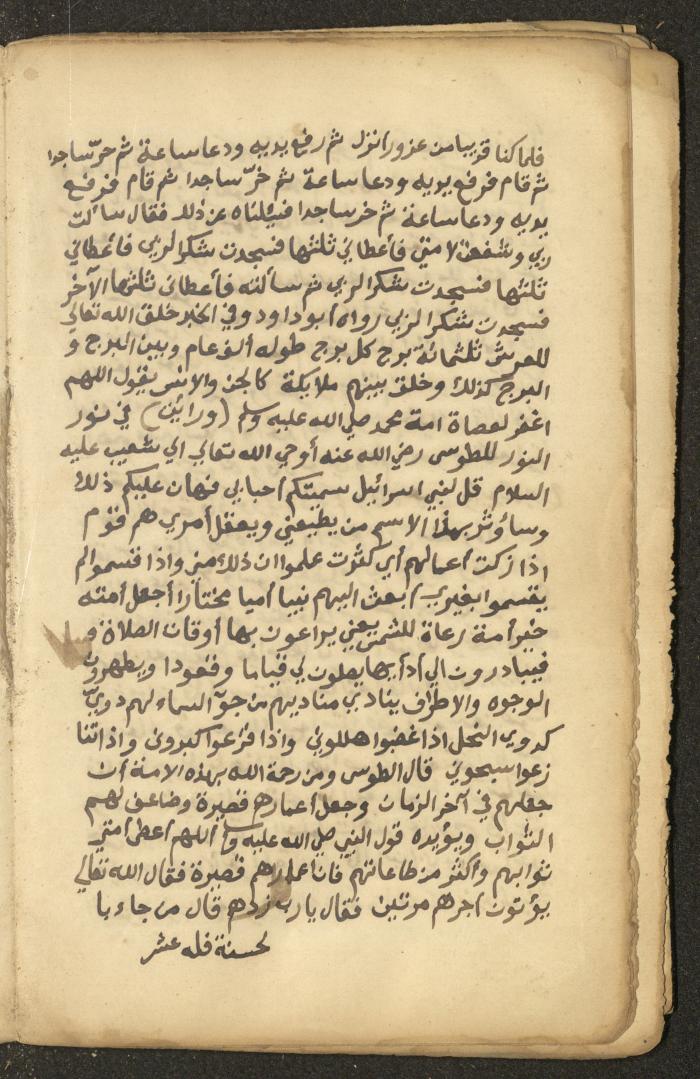 فلما كنا قريبا من عزورا نزل ثم رفع يديه ودعا ساعة ثم خرّ ساجدا
ثم قام فرفع يديه ودعا ساعة ثم خرّ ساجدا ثم قام فرفع
يديه ودعا ساعة ثم خر ساجدا فسئلناه عن ذلك فقال سألت
ربي وشفعت لامتي فأعطاني ثلثها فسجدت شكرا لربي فأعطاني
ثلثها فسجدت شكرا لربي ثم سألته فأعطاني ثلثها الآخر
فسجدت شكرا لربي رواه أبو داود وفي الخبر خلق الله تعالي
للعرش ثلثمائة برج كل برج طوله ألف عام وبين البرج و
البرج كذلك وخلق بينهم ملايكة كالجن والانس يقول اللهم
اغفر لعصاة امة محمد صلي الله عليه وسلم (ورأيت) في نور
النور للطوسى رضي الله عنه أوحي الله تعالي الي شعيب عليه
السلام قل لبني اسرائيل سميتكم أحبابي فهان عليكم ذلك
وسأوثر بهذا الاسم من يطيعني ويعقل أمري هم قوم
اذا زكت أعمالهم أي كثرت علموا ان ذلك مني واذا قسموا لم
يقسموا بغيري أبعث اليهم نبيا أميا مختارا أجعل أمته
خير أمة رعاة للشمس يعني يراعون بها أوقات الصلاة و
فيبادرون الي أدأيها يصلون لي قياما وقعودا ويطهرون
الوجوه والاطراف ينادي مناديهم من جوّ السماء لهم دويّ
كدوي النحل اذا غضبوا هللوني واذا فزعوا كبروني واذا تنا
زعوا سبحوني قال الطوسى ومن رحمة الله بهذه الامة أن
جعلهم في آخر الزمان وجعل أعمارهم قصيرة وضاعف لهم
الثواب ويؤيده قول النبي صلي الله عليه وسلم اللهم أعطي أمتي
ثوابهم وأكثر من طاعاتهم فان أعمارهم قصيرة فقال الله تعالي
يؤتون أجرهم مرتين فقال يا رب زدهم قال من جاء با
لحسنة فله عشر